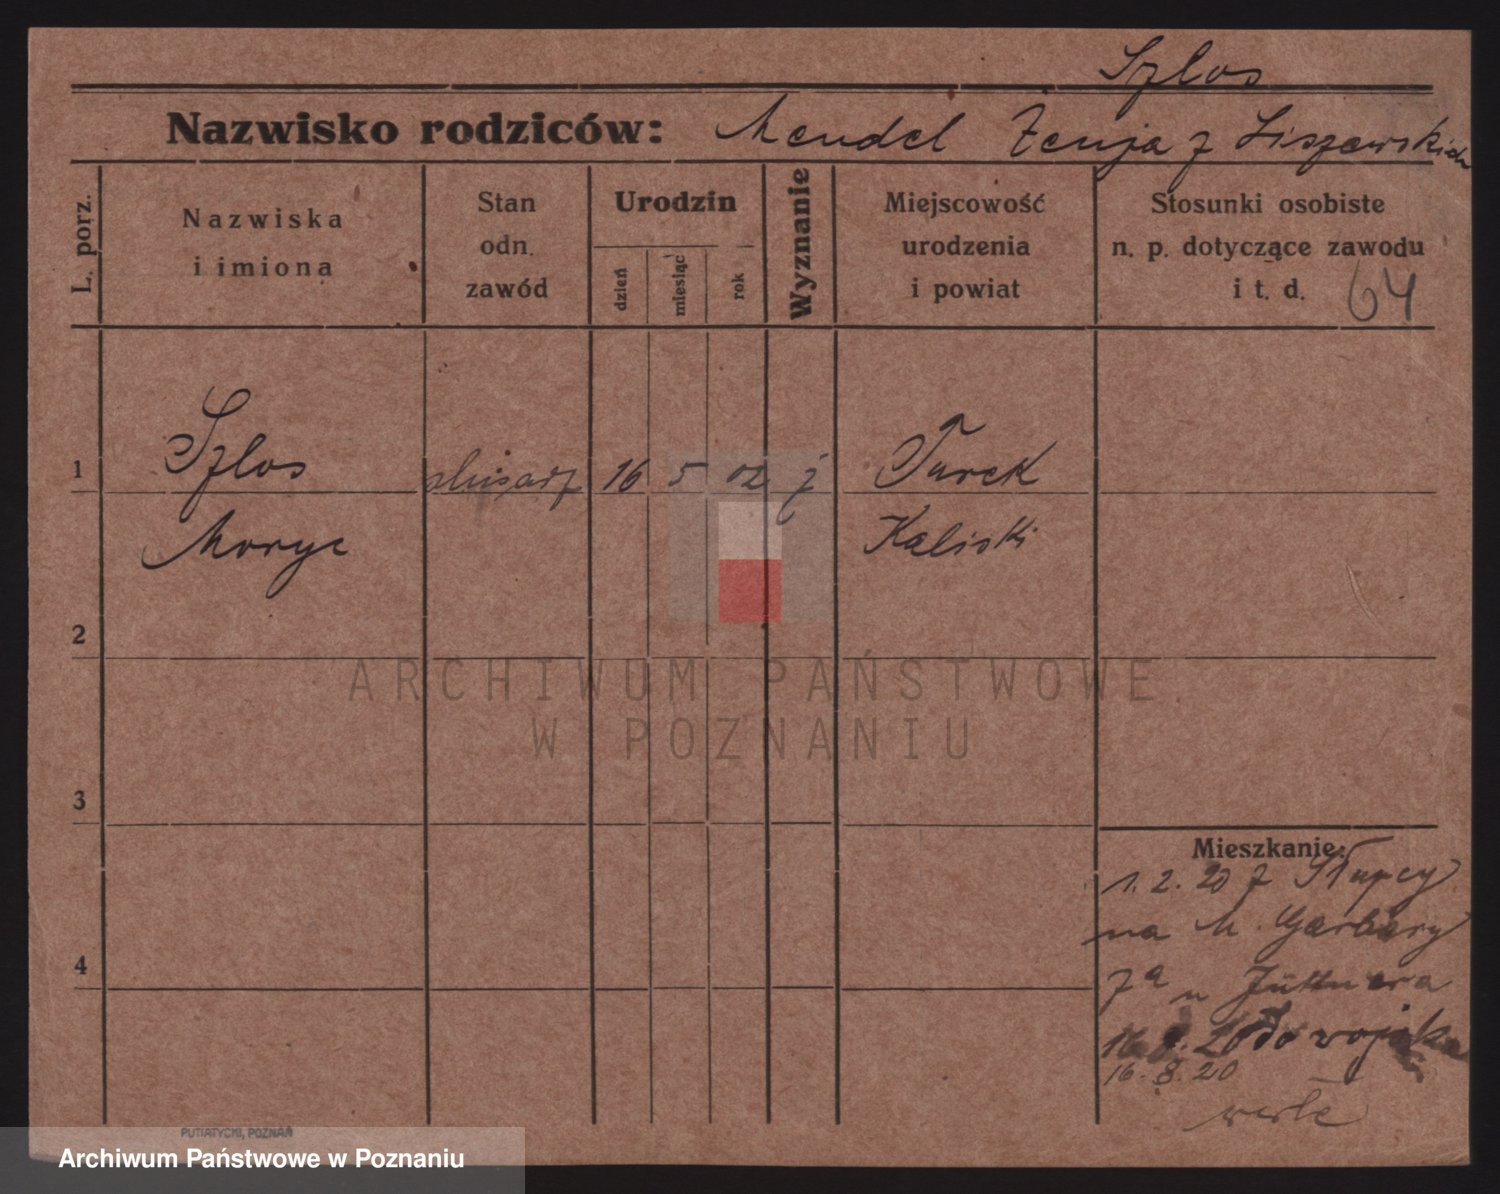 Szlos
Nazwisko rodziców: Mendel Żenja z Liszewskich
L. porz.
Nazwiska
i imiona
Stan
odn.
zawód
Urodzin
dzień
miesiąc
rok
Wyznanie
Miejscowość
urodzenia
i powiat
Stosunki osobiste
n. p. dotyczące zawodu
i t. d. 64
1 Szlos ślusarz 16 5 02 j Turek
Moryc Kaliski
2
ARCHIWUM PAŃSTWOWE
W POZNANIU
3
Mieszkanie:
1. 2. 20 z Słupcy
na M. Garbary
7a u Jüttnera
4
16 8. 20 do wojska
16. 8. 20
PUTIATYCKI, POZNAŃ
Archiwum Państwowe w Poznaniu